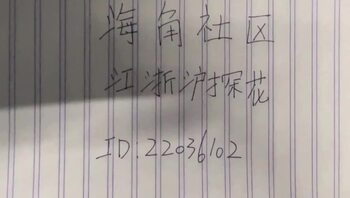 海角社区
江浙沪探花
ID.22036102